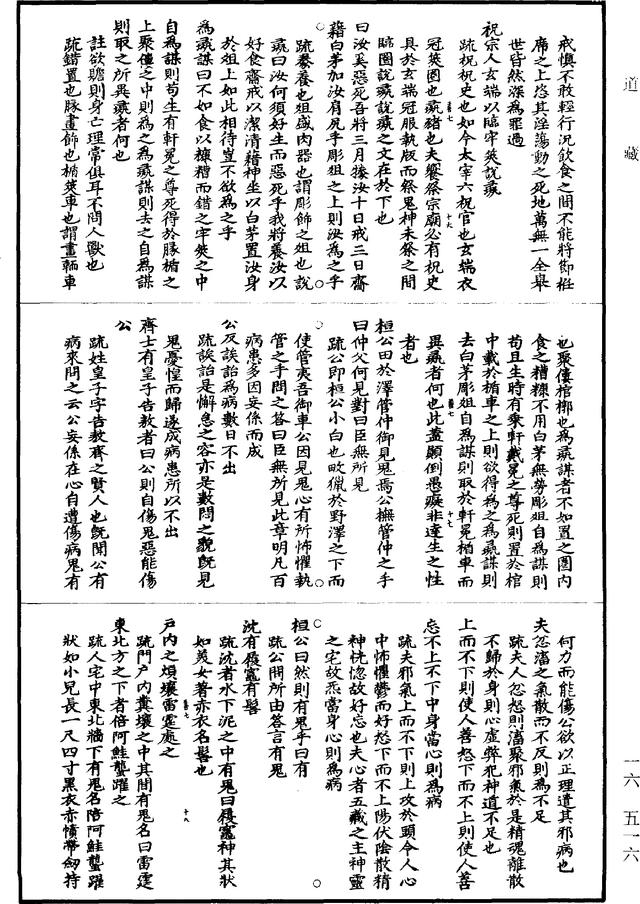 道藏
戒慎不敢輕行況飲食之間不能將節袵
席之上恣其淫蕩動之死地萬無一全舉
世皆然深為罪過
祝宗人玄端以臨牢筴說彘
疏祝祝史也如今太宰六祝官也玄端衣
冠筴圈也彘豬也夫饗祭宗廟必有祝史
具於玄端冠服執版而祭鬼神未祭之間
臨圈說彘說彘之文在於下也
曰汝奚惡死吾將三月㹖汝十日戒三日齋
藉白茅加汝肩尻乎彫俎之上則汝為之乎
疏㹖養也俎盛肉器也謂彫飾之俎也說
彘曰汝何須好生而惡死乎我將養汝以
好食齋戒以潔清藉神坐以白茅置汝身
於俎上如此相待豈不欲為之乎
為彘謀曰不如食以糠糟而錯之牢筴之中
自為謀則苟生有軒冕之尊死得於腞楯之
上聚僂之中則為之為彘謀則去之自為謀
則取之所異彘者何也
註欲贍則身亡理常俱耳不問人獸也
疏錯置也腞畫飾也楯筴車也謂畫輴車
也聚僂棺槨也為彘謀者不如置之圈內
食之糟糠不用白茅無勞彫俎自為謀則
苟且生時有乘軒戴冕之尊死則置於棺
中載於楯車之上則欲得為之為彘謀則
去白茅彫俎自為謀則取於軒冕楯車而
異彘者何也此蓋顛倒愚癡非達生之性
者也
桓公田於澤管仲御見鬼焉公撫管仲之手
曰仲父何見對曰臣無所見
疏公即桓公小白也畋獵於野澤之下而
使管夷吾御車公因見鬼心有所怖懼執
管之手問之荅曰臣無所見此章明凡百
病患多因妄係而成
公反誒詒為病數日不出
疏誒詒是懈怠之容亦是數悶之貌既見
鬼憂惶而歸遂成病患所以不出
齊士有皇子告敖者曰公則自傷鬼惡能傷
公
疏姓皇子字告敖齊之賢人也既聞公有
病來問之云公妄係在心自遭傷病鬼有
何力而能傷公欲以正理遣其邪病也
夫忿滀之氣散而不反則為不足
疏夫人忿怒則滀聚邪氣於是精魂離散
不歸於身則心虛弊犯神道不足也
上而不下則使人善怒下而不上則使人善
忘不上不下中身當心則為病
疏夫邪氣上而不下則上攻於頭令人心
中怖懼鬱而好怒下而不上陽伏陰散精
神恍惚故好忘也夫心者五藏之主神靈
之宅故氣當身心則為病
桓公曰然則有鬼乎曰有
疏公問所由答言有鬼
沈有履竈有髻
疏沈者水下泥之中有鬼曰履竈神其狀
如美女著赤衣名髻也
戶內之煩壤雷霆處之
疏門戶內糞壤之中其間有鬼名曰雷霆
東北方之下者倍阿鮭蠪躍之
疏人宅中東北牆下有鬼名陪阿鮭蠪躍
狀如小兒長一尺四寸黑衣赤幘帶劒持
一六 五一六